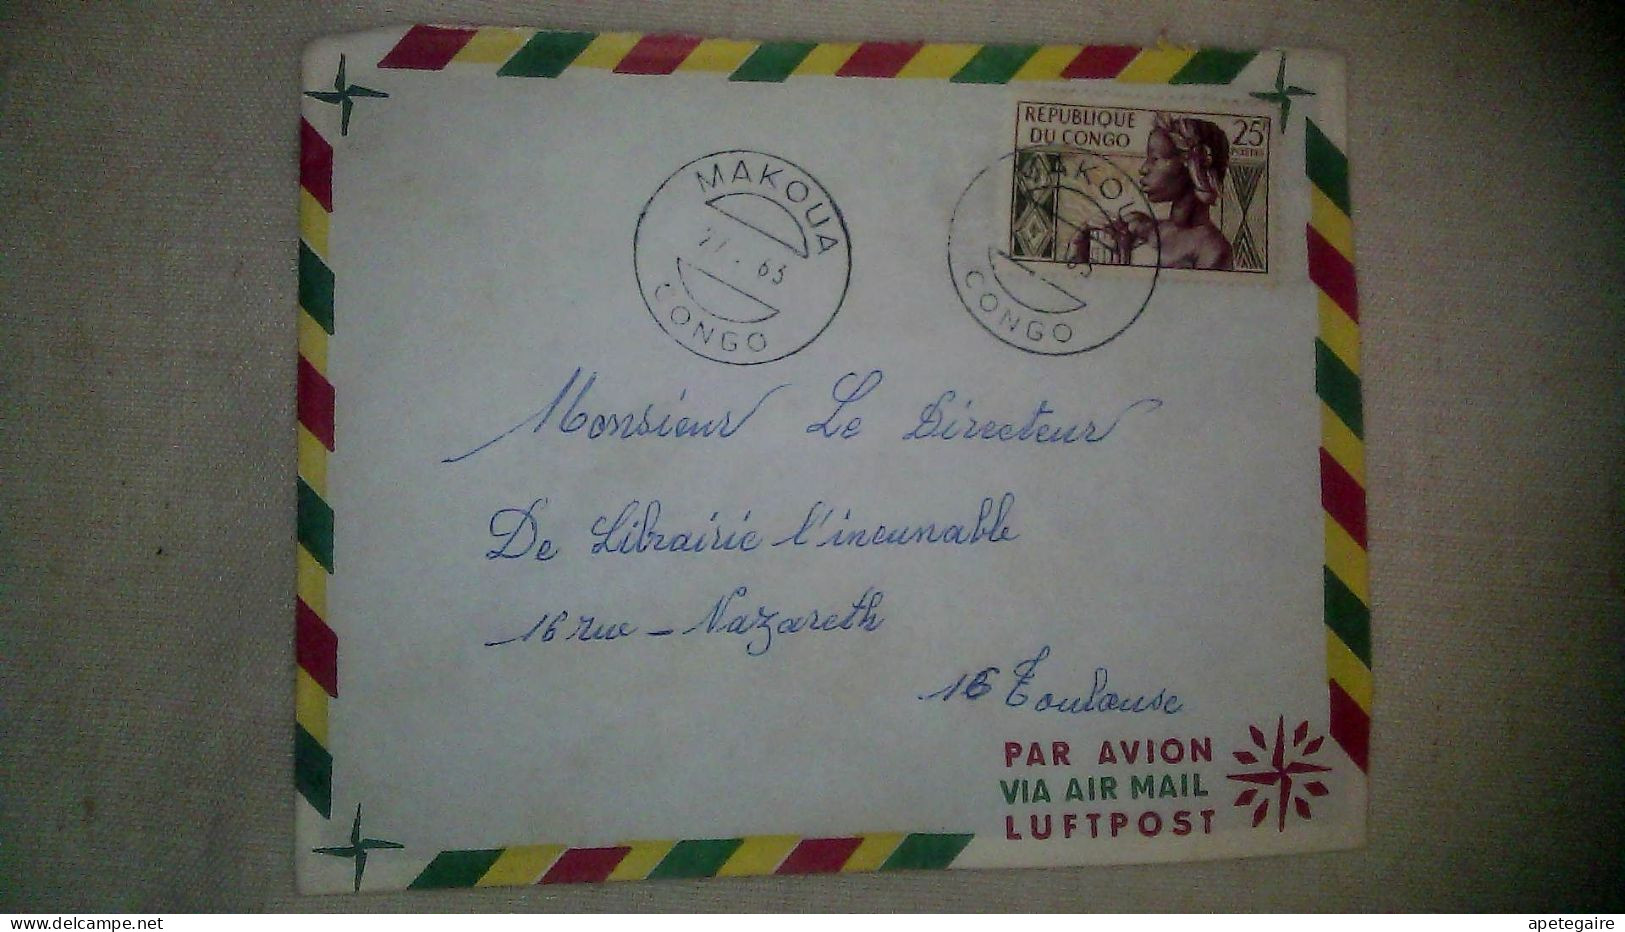 REPUBLIQUE
DU CONGO
25F
POSTES
MAKOUA
63
CONGO
MAKOUA
63
CONGO
Monsieur Le Directeur
De Librairie l'incunable
16 rue - Nazareth
16 Toulouse
PAR AVION
VIA AIR MAIL
LUFTPOST
www.delcampe.net
apetegaire